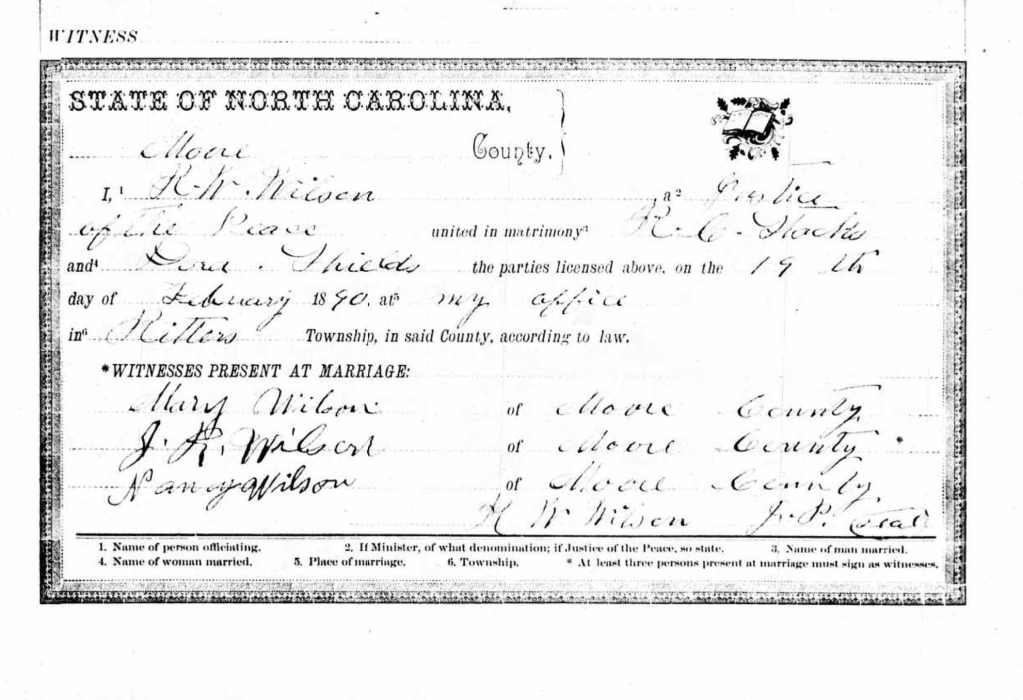 WITNESS
STATE OF NORTH CAROLINA,
Moore County,
I,¹ R. W. Wilson, a² Justice
of The Peace united in matrimony³ R. C. Stocks
and⁴ Dora Shields the parties licensed above, on the 19 th
day of February 1890, at⁵ my office
in⁶ Ritters Township, in said County, according to law.
*WITNESSES PRESENT AT MARRIAGE:
Mary Wilson of Moore County
J. R. Wilson of Moore County
Nancy Wilson of Moore County
R W Wilson J. P. Seal
1. Name of person officiating. 2. If Minister, of what denomination; if Justice of the Peace, so state. 3. Name of man married.
4. Name of woman married. 5. Place of marriage. 6. Township. * At least three persons present at marriage must sign as witnesses.